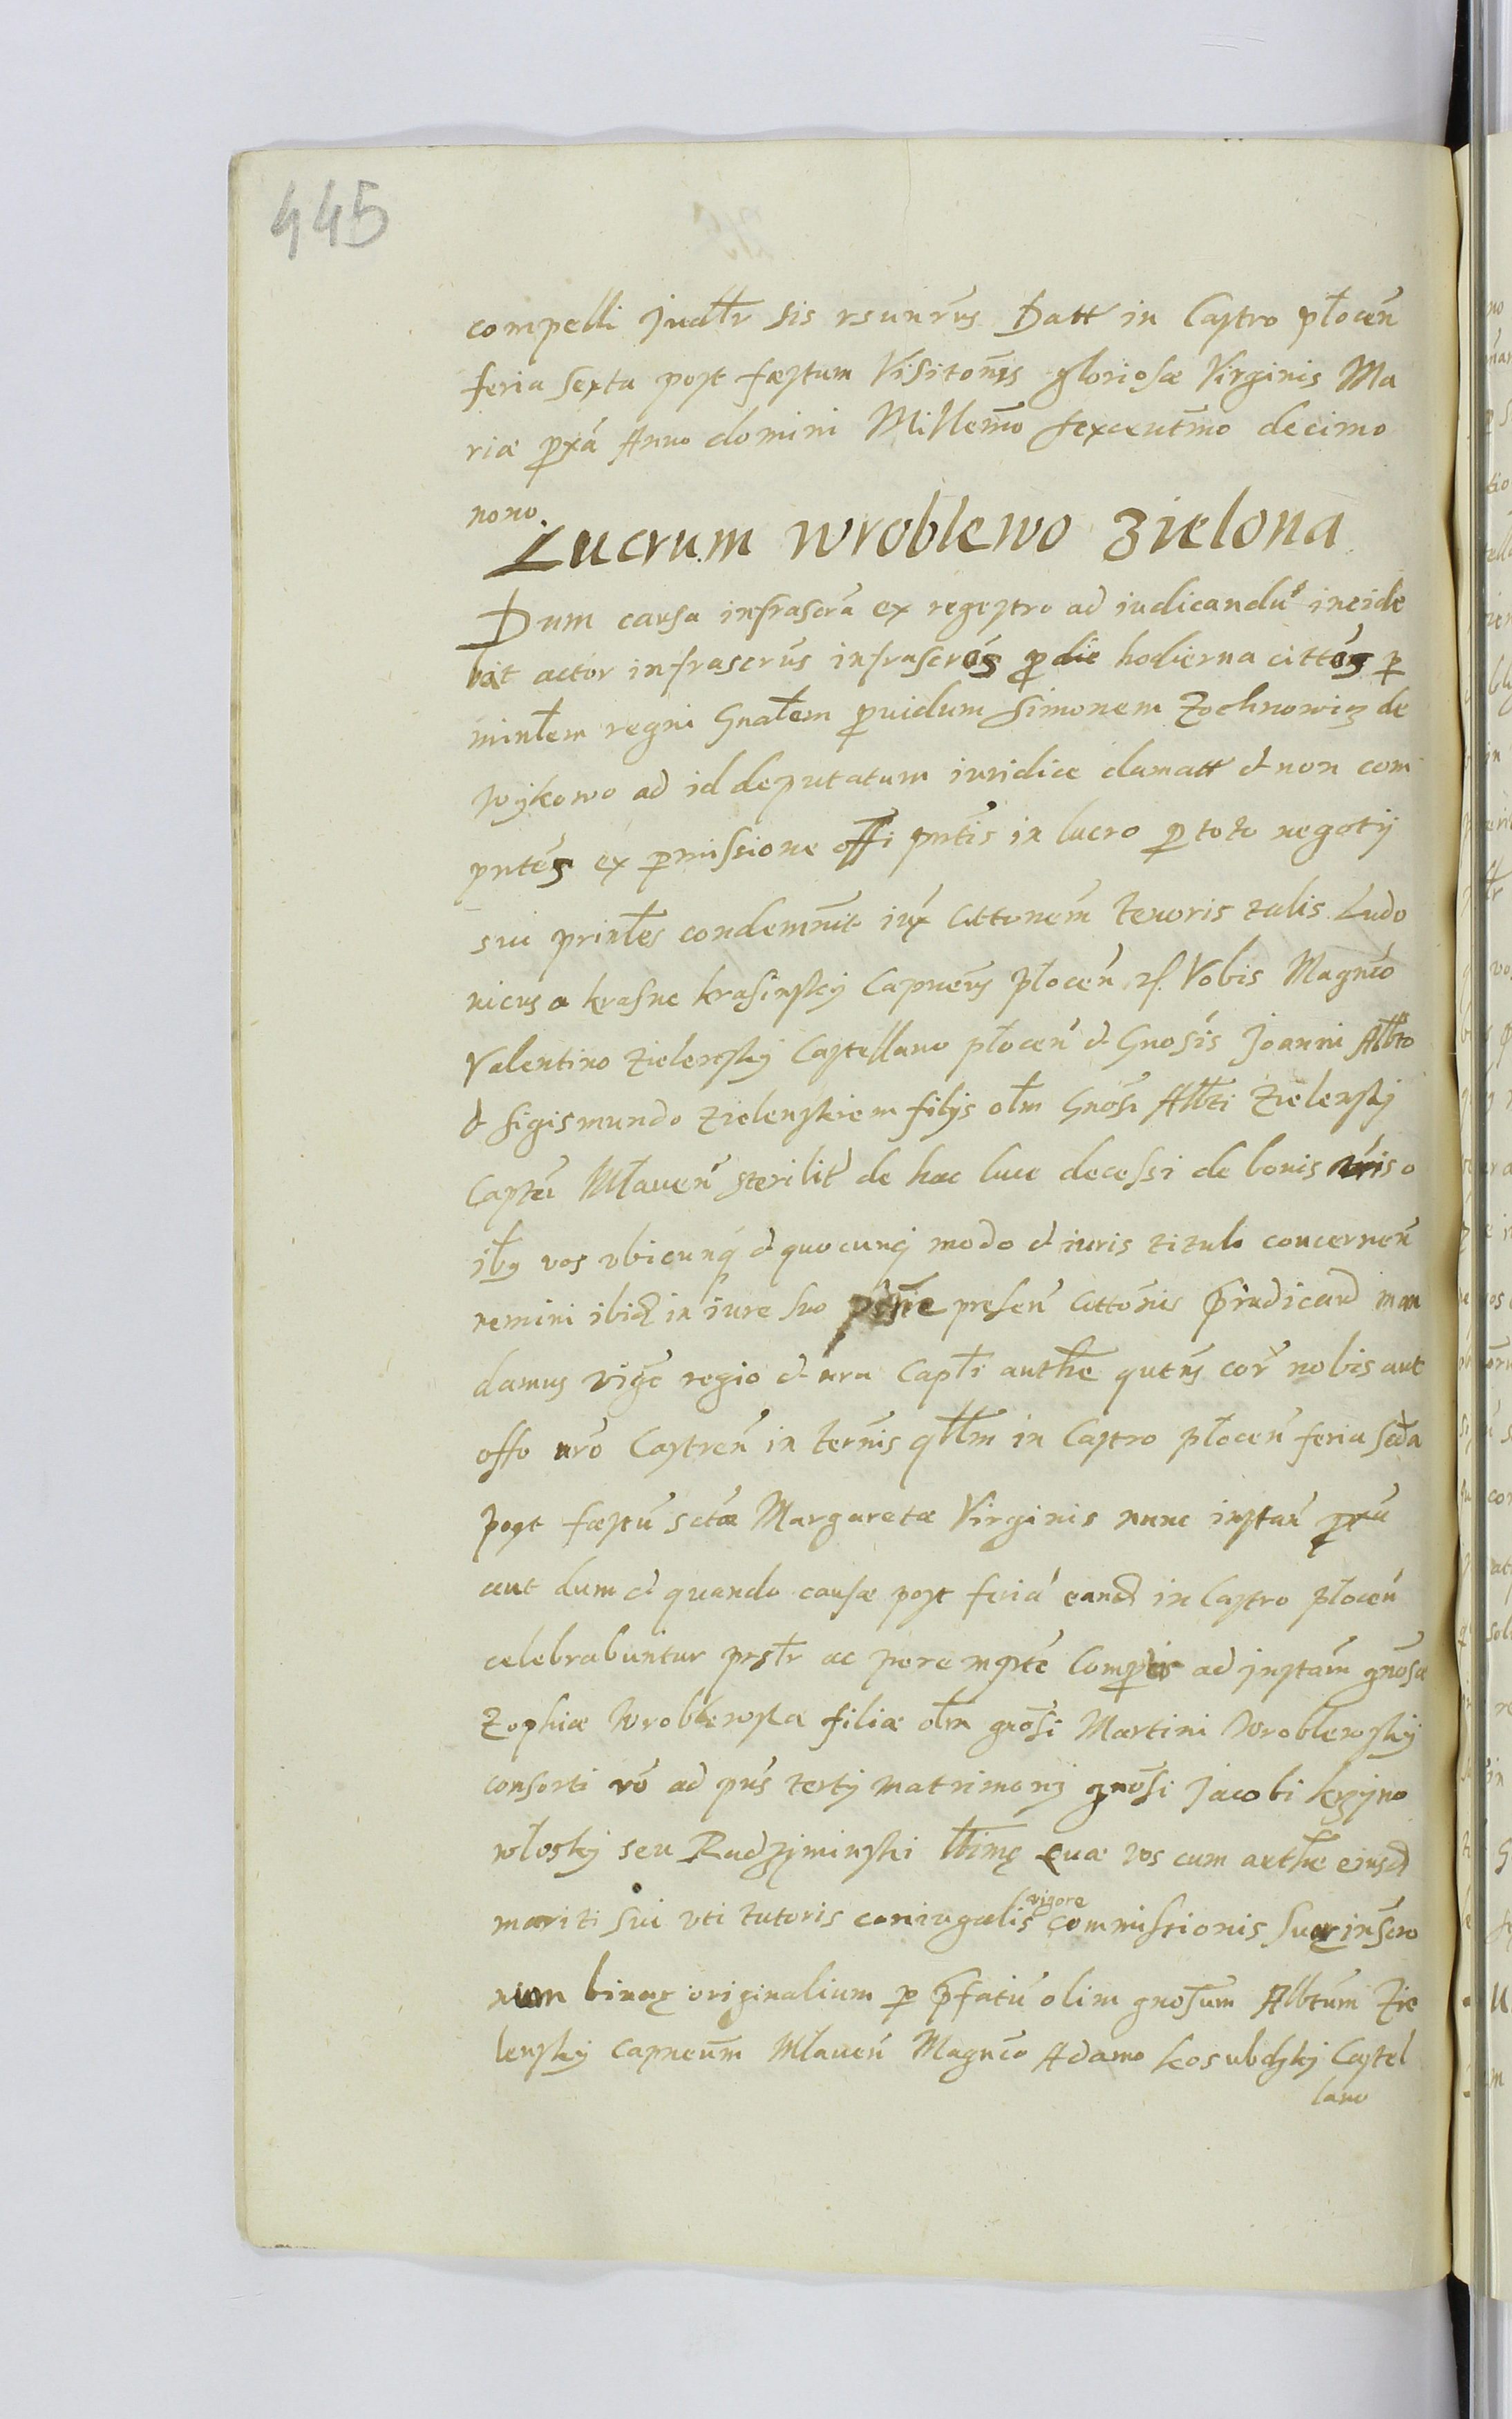 445
compelli Judtr sis rsunrus Datt in Castro płocen
feria sexta post fæstum Visitonis gloriosæ Virginis Ma
riæ pxa Anno domini Millemo sexcentmo decimo
nono.
Lucrum wroblewo zielona
Dum causa infrascra ex regestro ad iudicandu incide
bat actor infrascrus infrascros p die hodierna cittos p
minlem regni Gnalem puidum Simonem Zochnowicz de
Wykowo ad id deputatum iuridice clamatt & non com
pntes ex pmissione offi pntis in lucro p toto negotij
sui prinles condemnit iux Cittonem tenoris talis Ludo
uicus a krasne krasinskij Capneus płocen Vobis Magnco
Valentino zielenskij Castellano płocen & Gnosis Joanni Albto
& sigismundo zielenskiem filijs olm Gnosi Albti zielenskij
Captei Mławen sterilit de hac luce decessi de bonis vris o
ibg vos vbicunq & quocunq modo & iuris titulo concernen
nemini ibid in iure suo presen Cittonis piudicand man
damus vigc regio & nra Captli authe qutus cor nobis aut
offo nro Castren in termis qllm in Castro płocen feria scda
post fæstu sctæ Margaretæ Virginis nunc instan pxu
aut dum & quando causæ post feria eand in Castro płocen
celebrabuntur prstr ac perempte Compis ad instam gnosæ
Zophiæ Wroblewska filiæ olm gnosi Martini Wroblewskij
consorti vo ad pns tertij matrimonij gnosi Jacobi krzyno
włoskij seu Radzyminski ltimę quæ vos cum authe eiusd
mariti sui vti tutoris coniugalis vigore commissionis suar inscro
num binar originalium p pfatu olim gnosum Albtum Zie
lenskij Capneum Mławen Magnco Adamo kosubskij Castel
lano